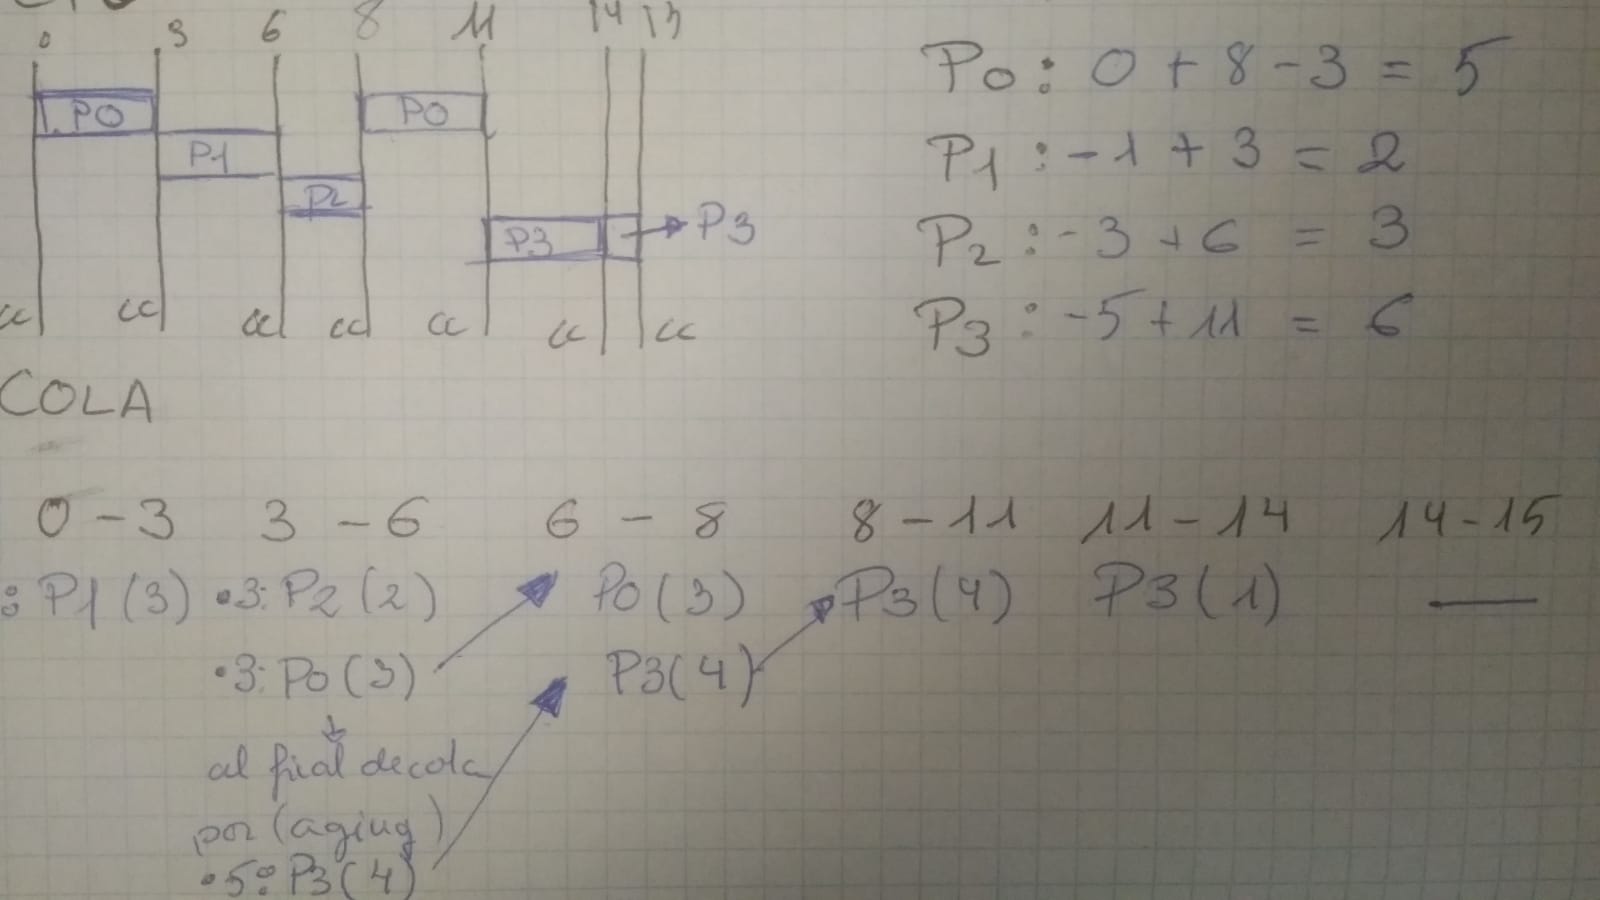 0 3 6 8 11 14 15
P0 P0
P1
P2
P3 P3
cc cc cc cc cc cc cc
P0 : 0 + 8 - 3 = 5
P1 : -1 + 3 = 2
P2 : -3 + 6 = 3
P3 : -5 + 11 = 6
COLA
0 - 3 3 - 6 6 - 8 8 - 11 11 - 14 14 - 15
: P1 (3) • 3: P2 (2) P0 (3) P3 (4) P3 (1) —
• 3: P0 (3) P3 (4)
al final de cola
por (aging)
• 5: P3 (4)